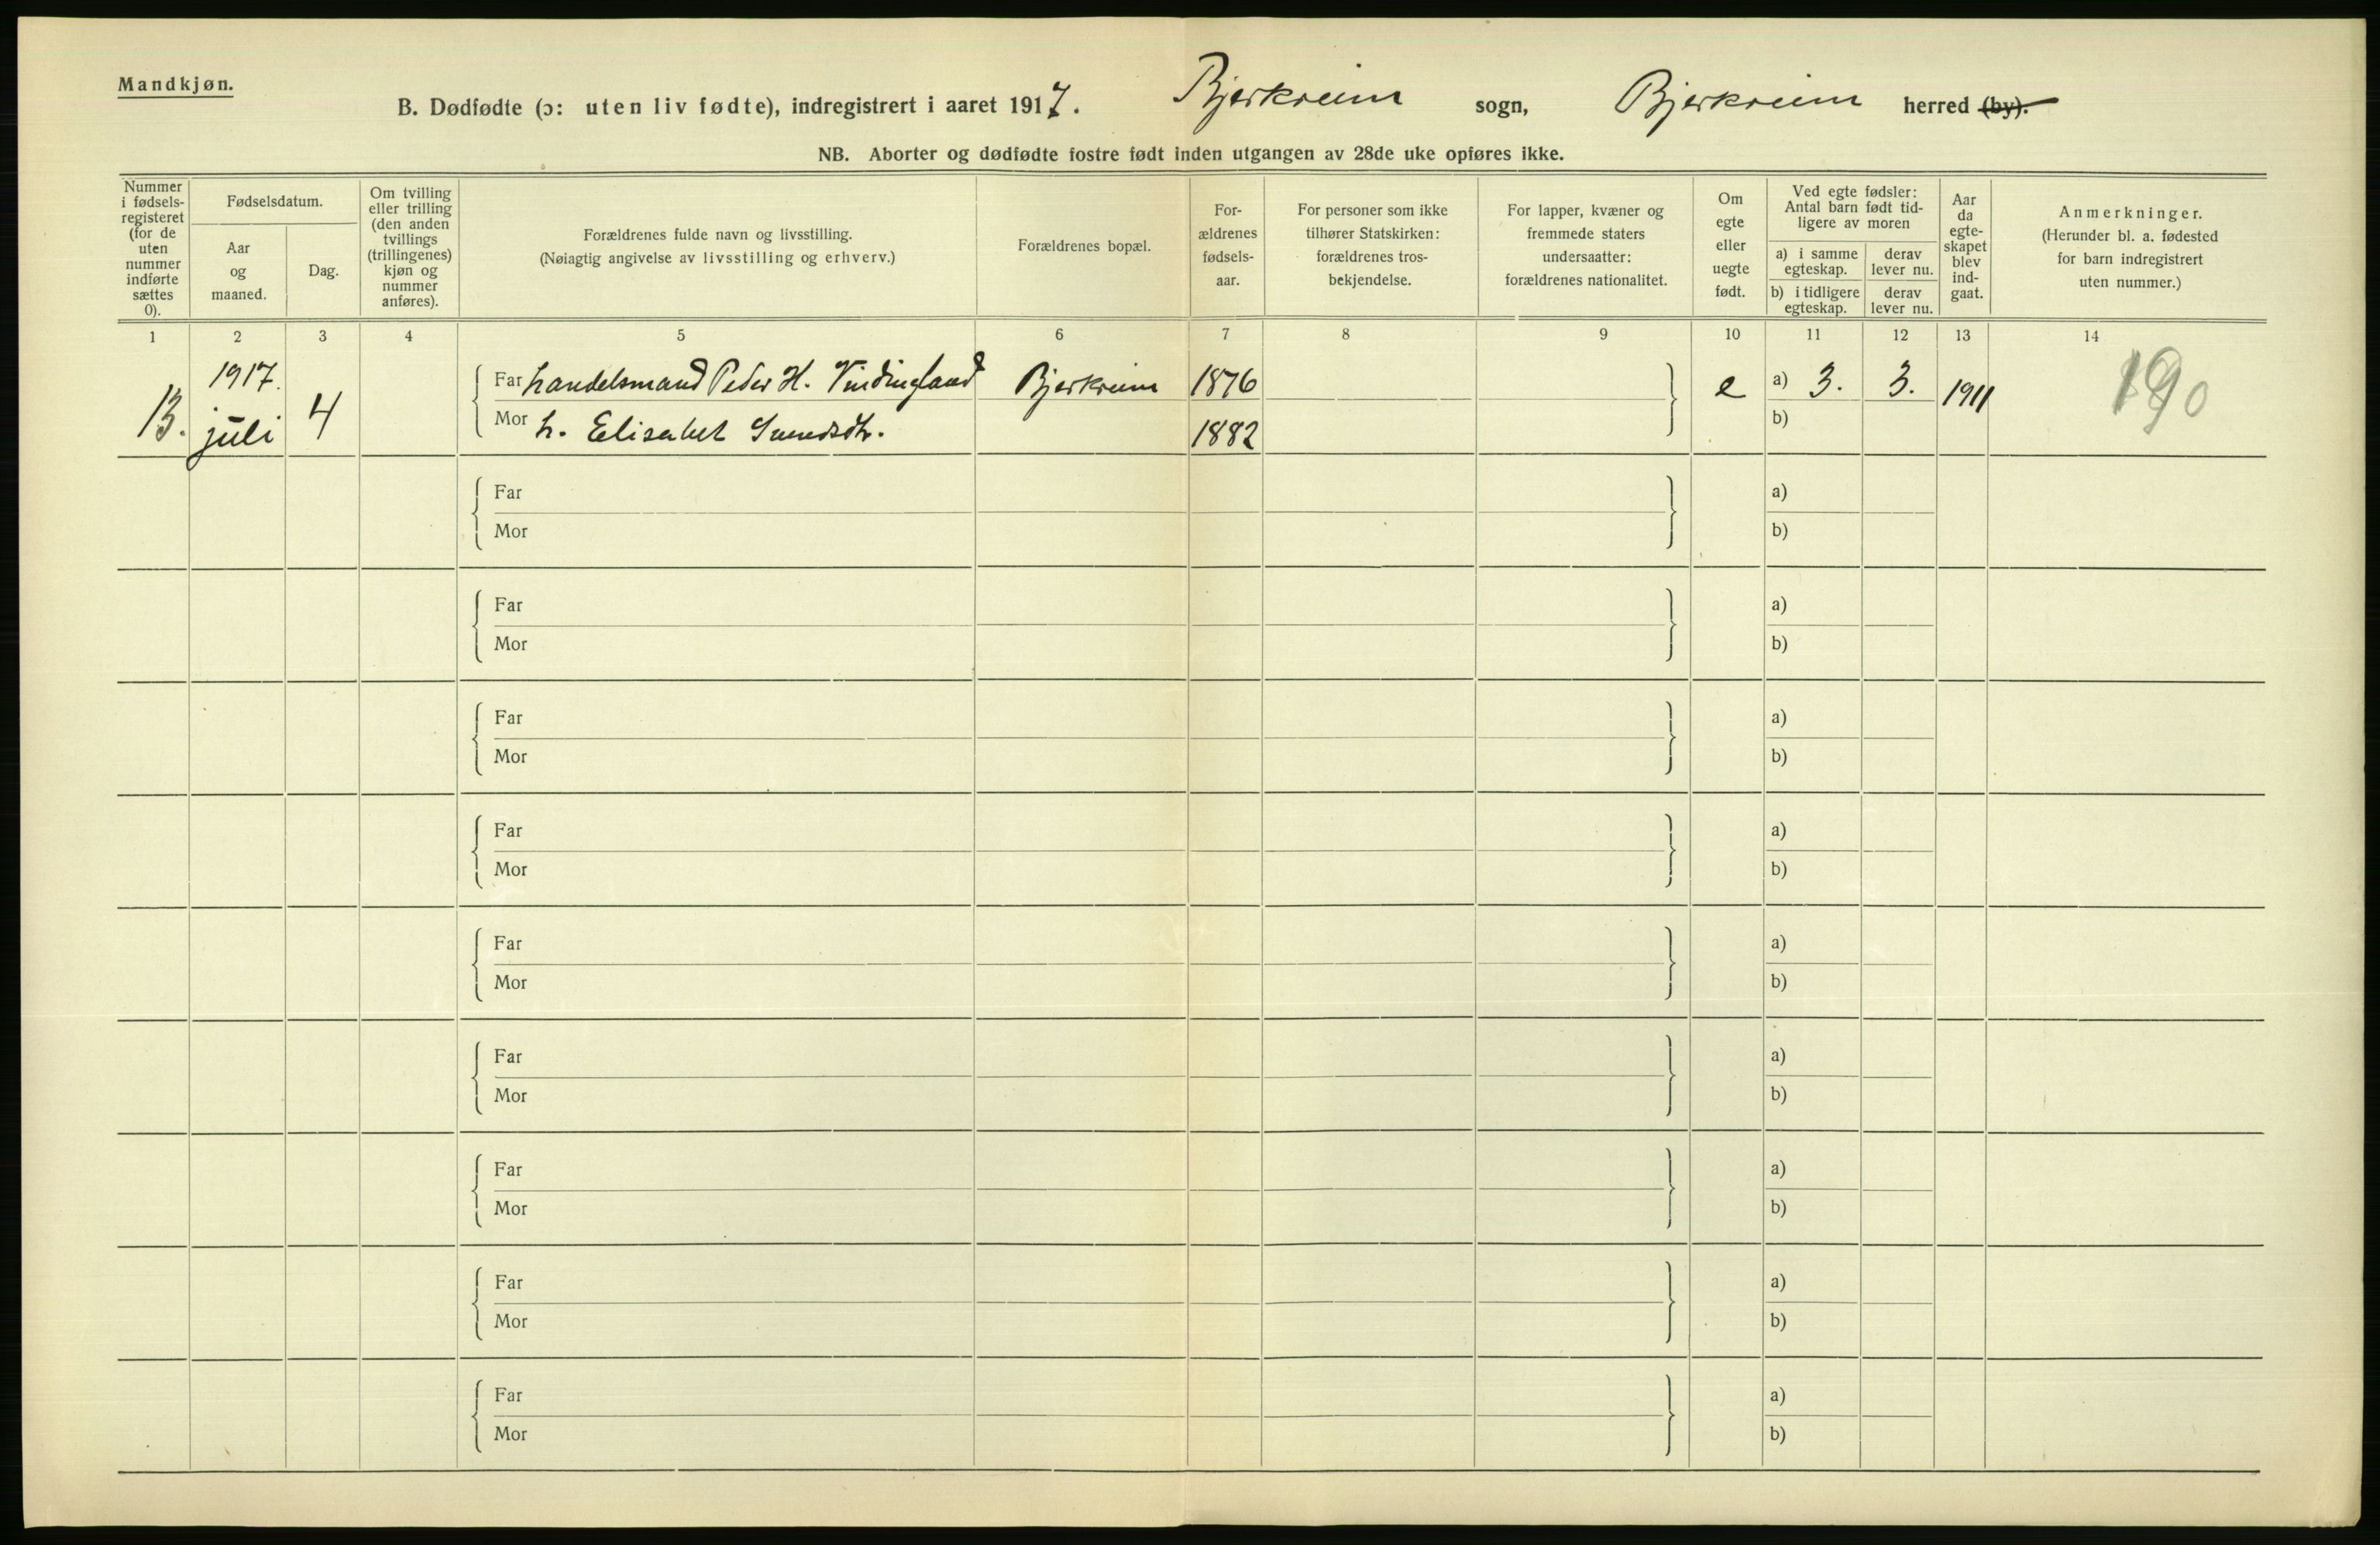 Mandkjøn.
B. Dødfødte (ɔ: uten liv fødte), indregistrert i aaret 1917. Bjerkreim sogn, Bjerkreim herred (by).
NB. Aborter og dødfødte fostre født inden utgangen av 28de uke opføres ikke.
Nummer
i fødsels-
registeret
(for de
uten
nummer
indførte
sættes
0).
Fødselsdatum.
Aar
og
maaned.
Dag.
Om tvilling
eller trilling
(den anden
tvillings
(trillingenes)
kjøn og
nummer
anføres).
Forældrenes fulde navn og livsstilling.
(Nøiagtig angivelse av livsstilling og erhverv.)
Forældrenes bopæl.
For-
ældrenes
fødsels-
aar.
For personer som ikke
tilhører Statskirken:
forældrenes tros-
bekjendelse.
For lapper, kvæner og
fremmede staters
undersaatter:
forældrenes nationalitet.
Om
egte
eller
uegte
født.
Ved egte fødsler:
Antal barn født tid-
ligere av moren
a) i samme
egteskap.
derav
lever nu.
b) i tidligere
egteskap.
derav
lever nu.
Aar
da
egte-
skapet
blev
ind-
gaat.
Anmerkninger.
(Herunder bl. a. fødested
for barn indregistrert
uten nummer.)
1 2 3 4 5 6 7 8 9 10 11 12 13 14
13. 1917. juli 4
Far handelsmand Peder H. Vindingland Bjerkreim 1876 e a) 3. 3. 1911
Mor h. Elisabet 1882 b)
Far a)
Mor b)
Far a)
Mor b)
Far a)
Mor b)
Far a)
Mor b)
Far a)
Mor b)
Far a)
Mor b)
Far a)
Mor b)
Far a)
Mor b)
Far a)
Mor b)